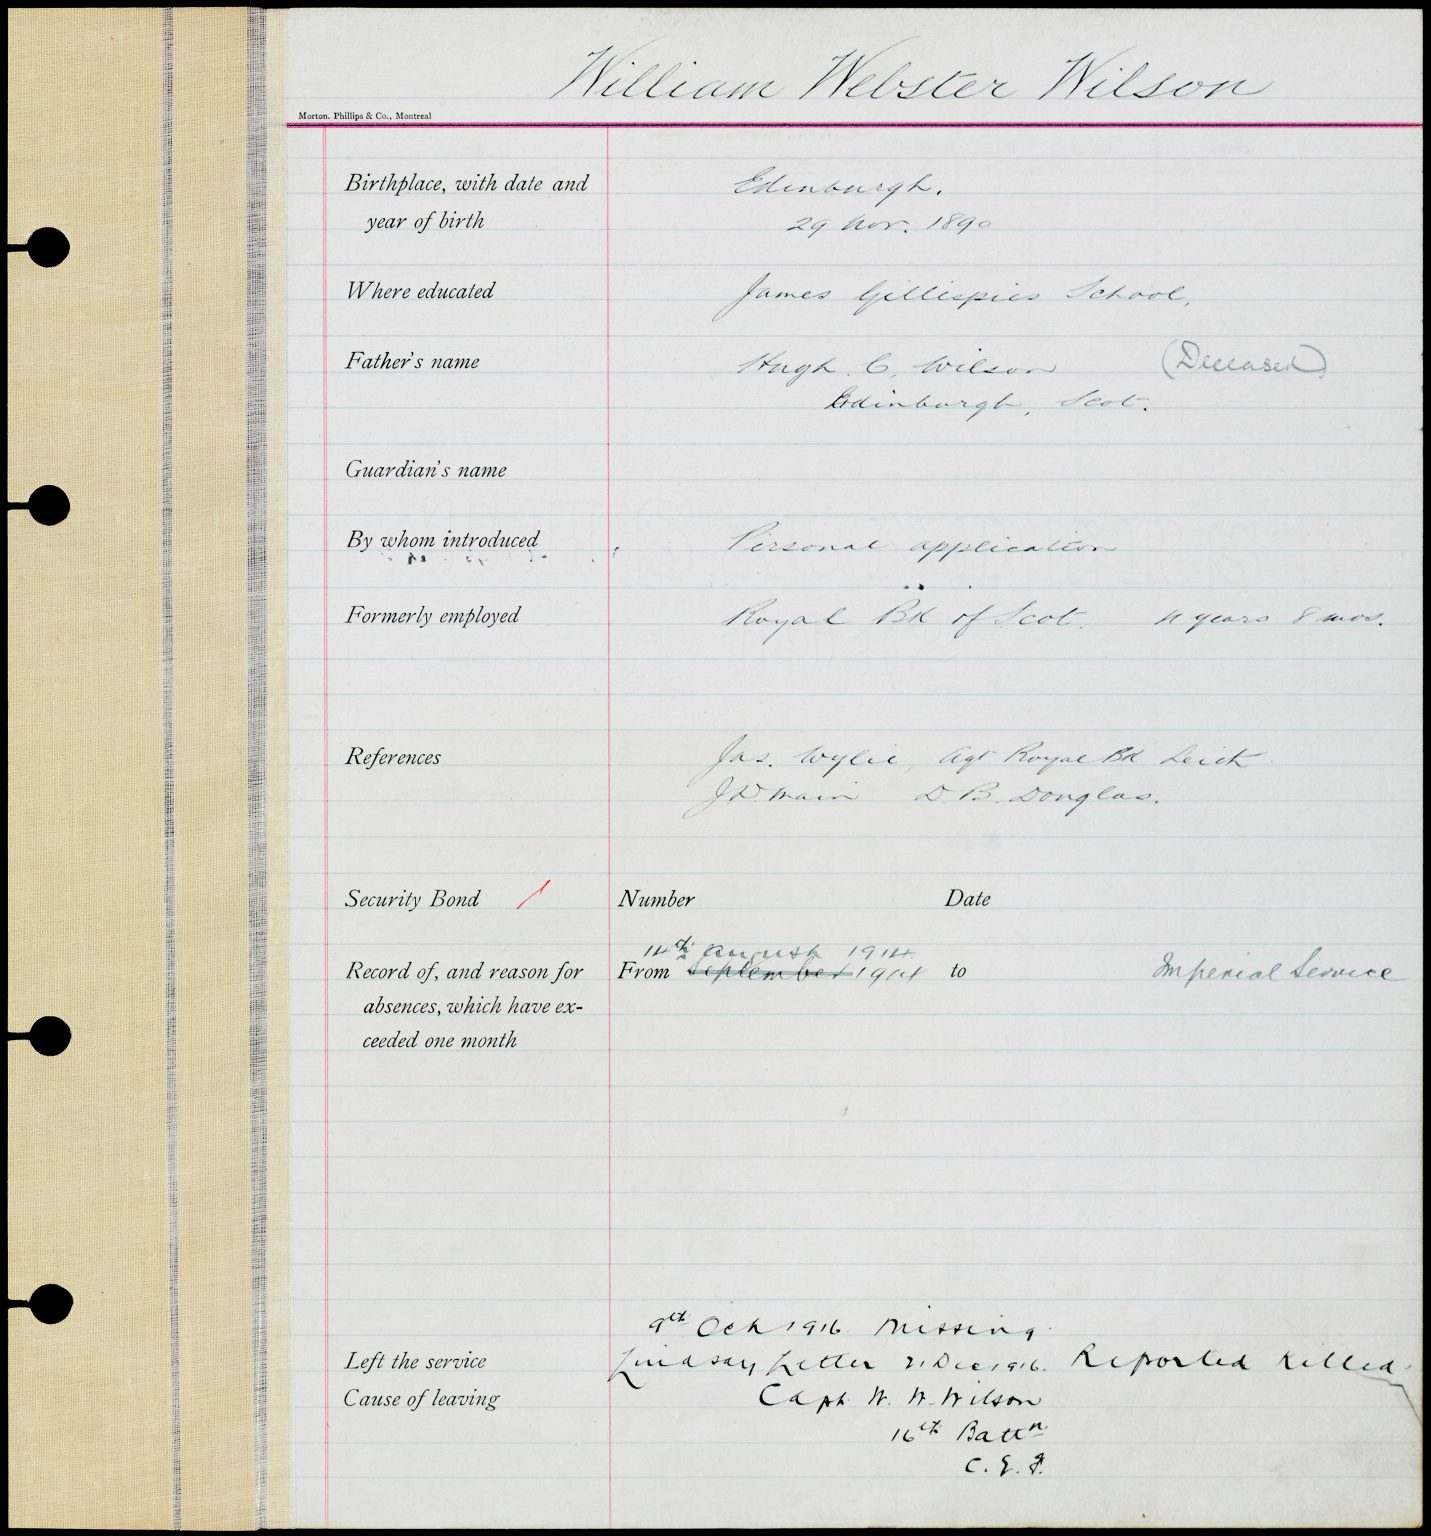 William Webster Wilson
Morton, Phillips & Co., Montreal
Birthplace, with date and Edinburgh.
year of birth 29 Nov. 1890
Where educated James Gillispies School.
Father's name Hugh C. Wilson (Deceased)
Edinburgh, Scot.
Guardian's name
By whom introduced Personal application
Formerly employed Royal Bk of Scot. 4 years 8 mos.
References Jas. Wylie, Agt Royal Bk Leith
J.D. Main D. B. Douglas.
Security Bond Number Date
14th August 1914
Record of, and reason for From September 1914 to Imperial Service
absences, which have ex-
ceeded one month
9th Oct 1916 Missing
Left the service Lindsay Letter 21 Dec 1916. Reported Killed.
Cause of leaving Capt. W. W. Wilson
16th Battn.
C. E. F.